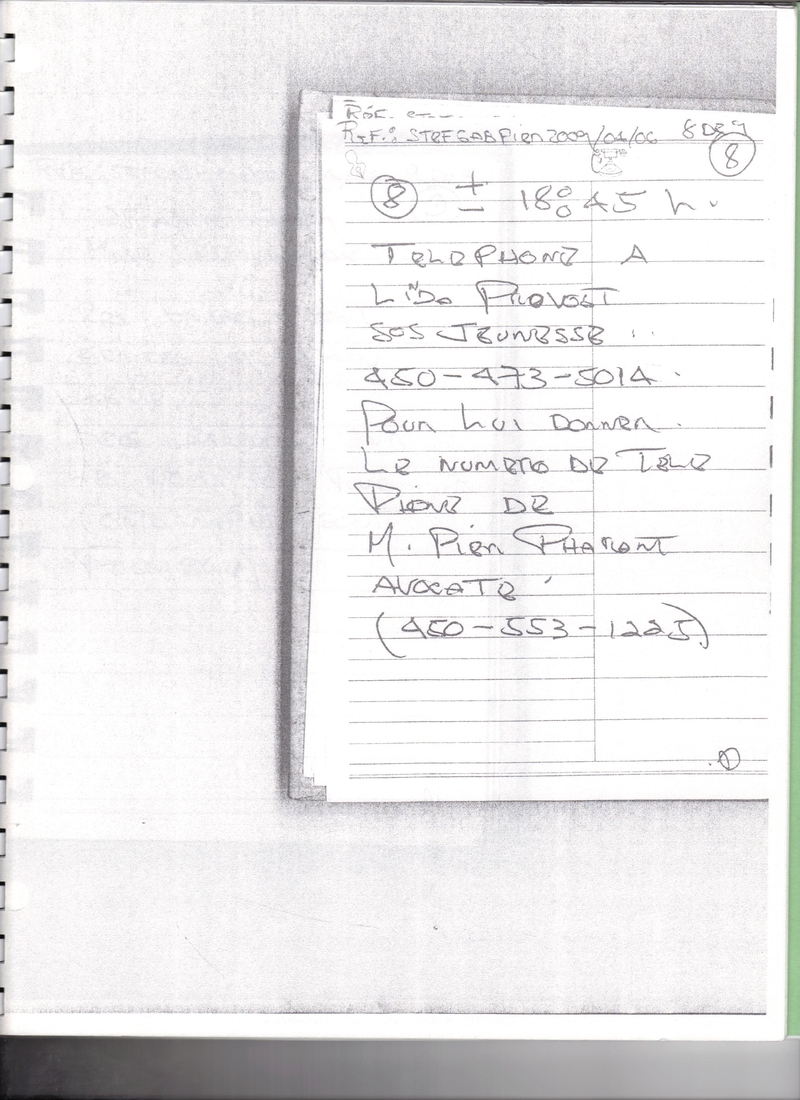 Réf.
Réf.: STEFGABPIER 2009/04/06 8 DE 9
8
8 ± 18:45 h.
TELEPHONE A
LiNDA PROVOST
SOS JEUNESSE ..
450-473-5014.
POUR LUI DONNER.
LE NUMERO DE TELE
PHONE DE
M. PiER PHARONT
AVOCATE
(450-553-1225)